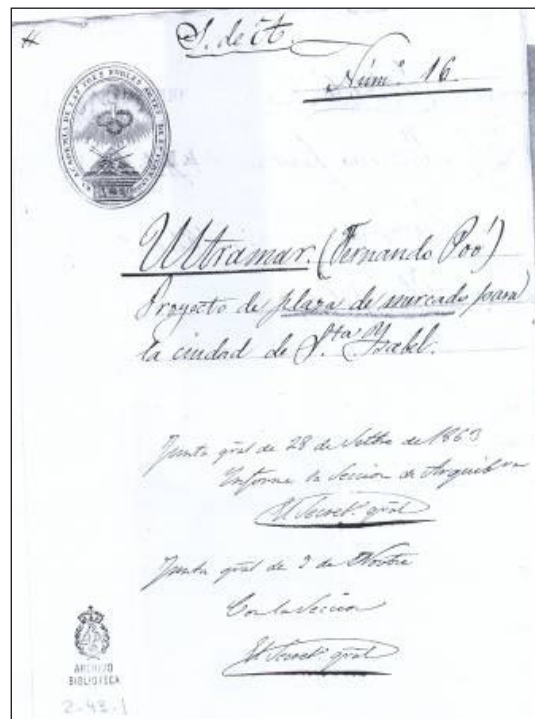 S. de A.
Núm.º 16.
ACADEMIA DE LAS TRES NOBLES ARTES DE
Ultramar. (Fernando Poó)
Proyecto de plaza de mercado para
la ciudad de S.ta Ysabel.
Junta gral de 28 de Setbre de 1863
Informe la Seccion de Arquitra
El Secret.º gral
Junta gral de 9 de Novbre
Con la Seccion
El Secret.º gral
ARCHIVO
BIBLIOTECA
2-43-1